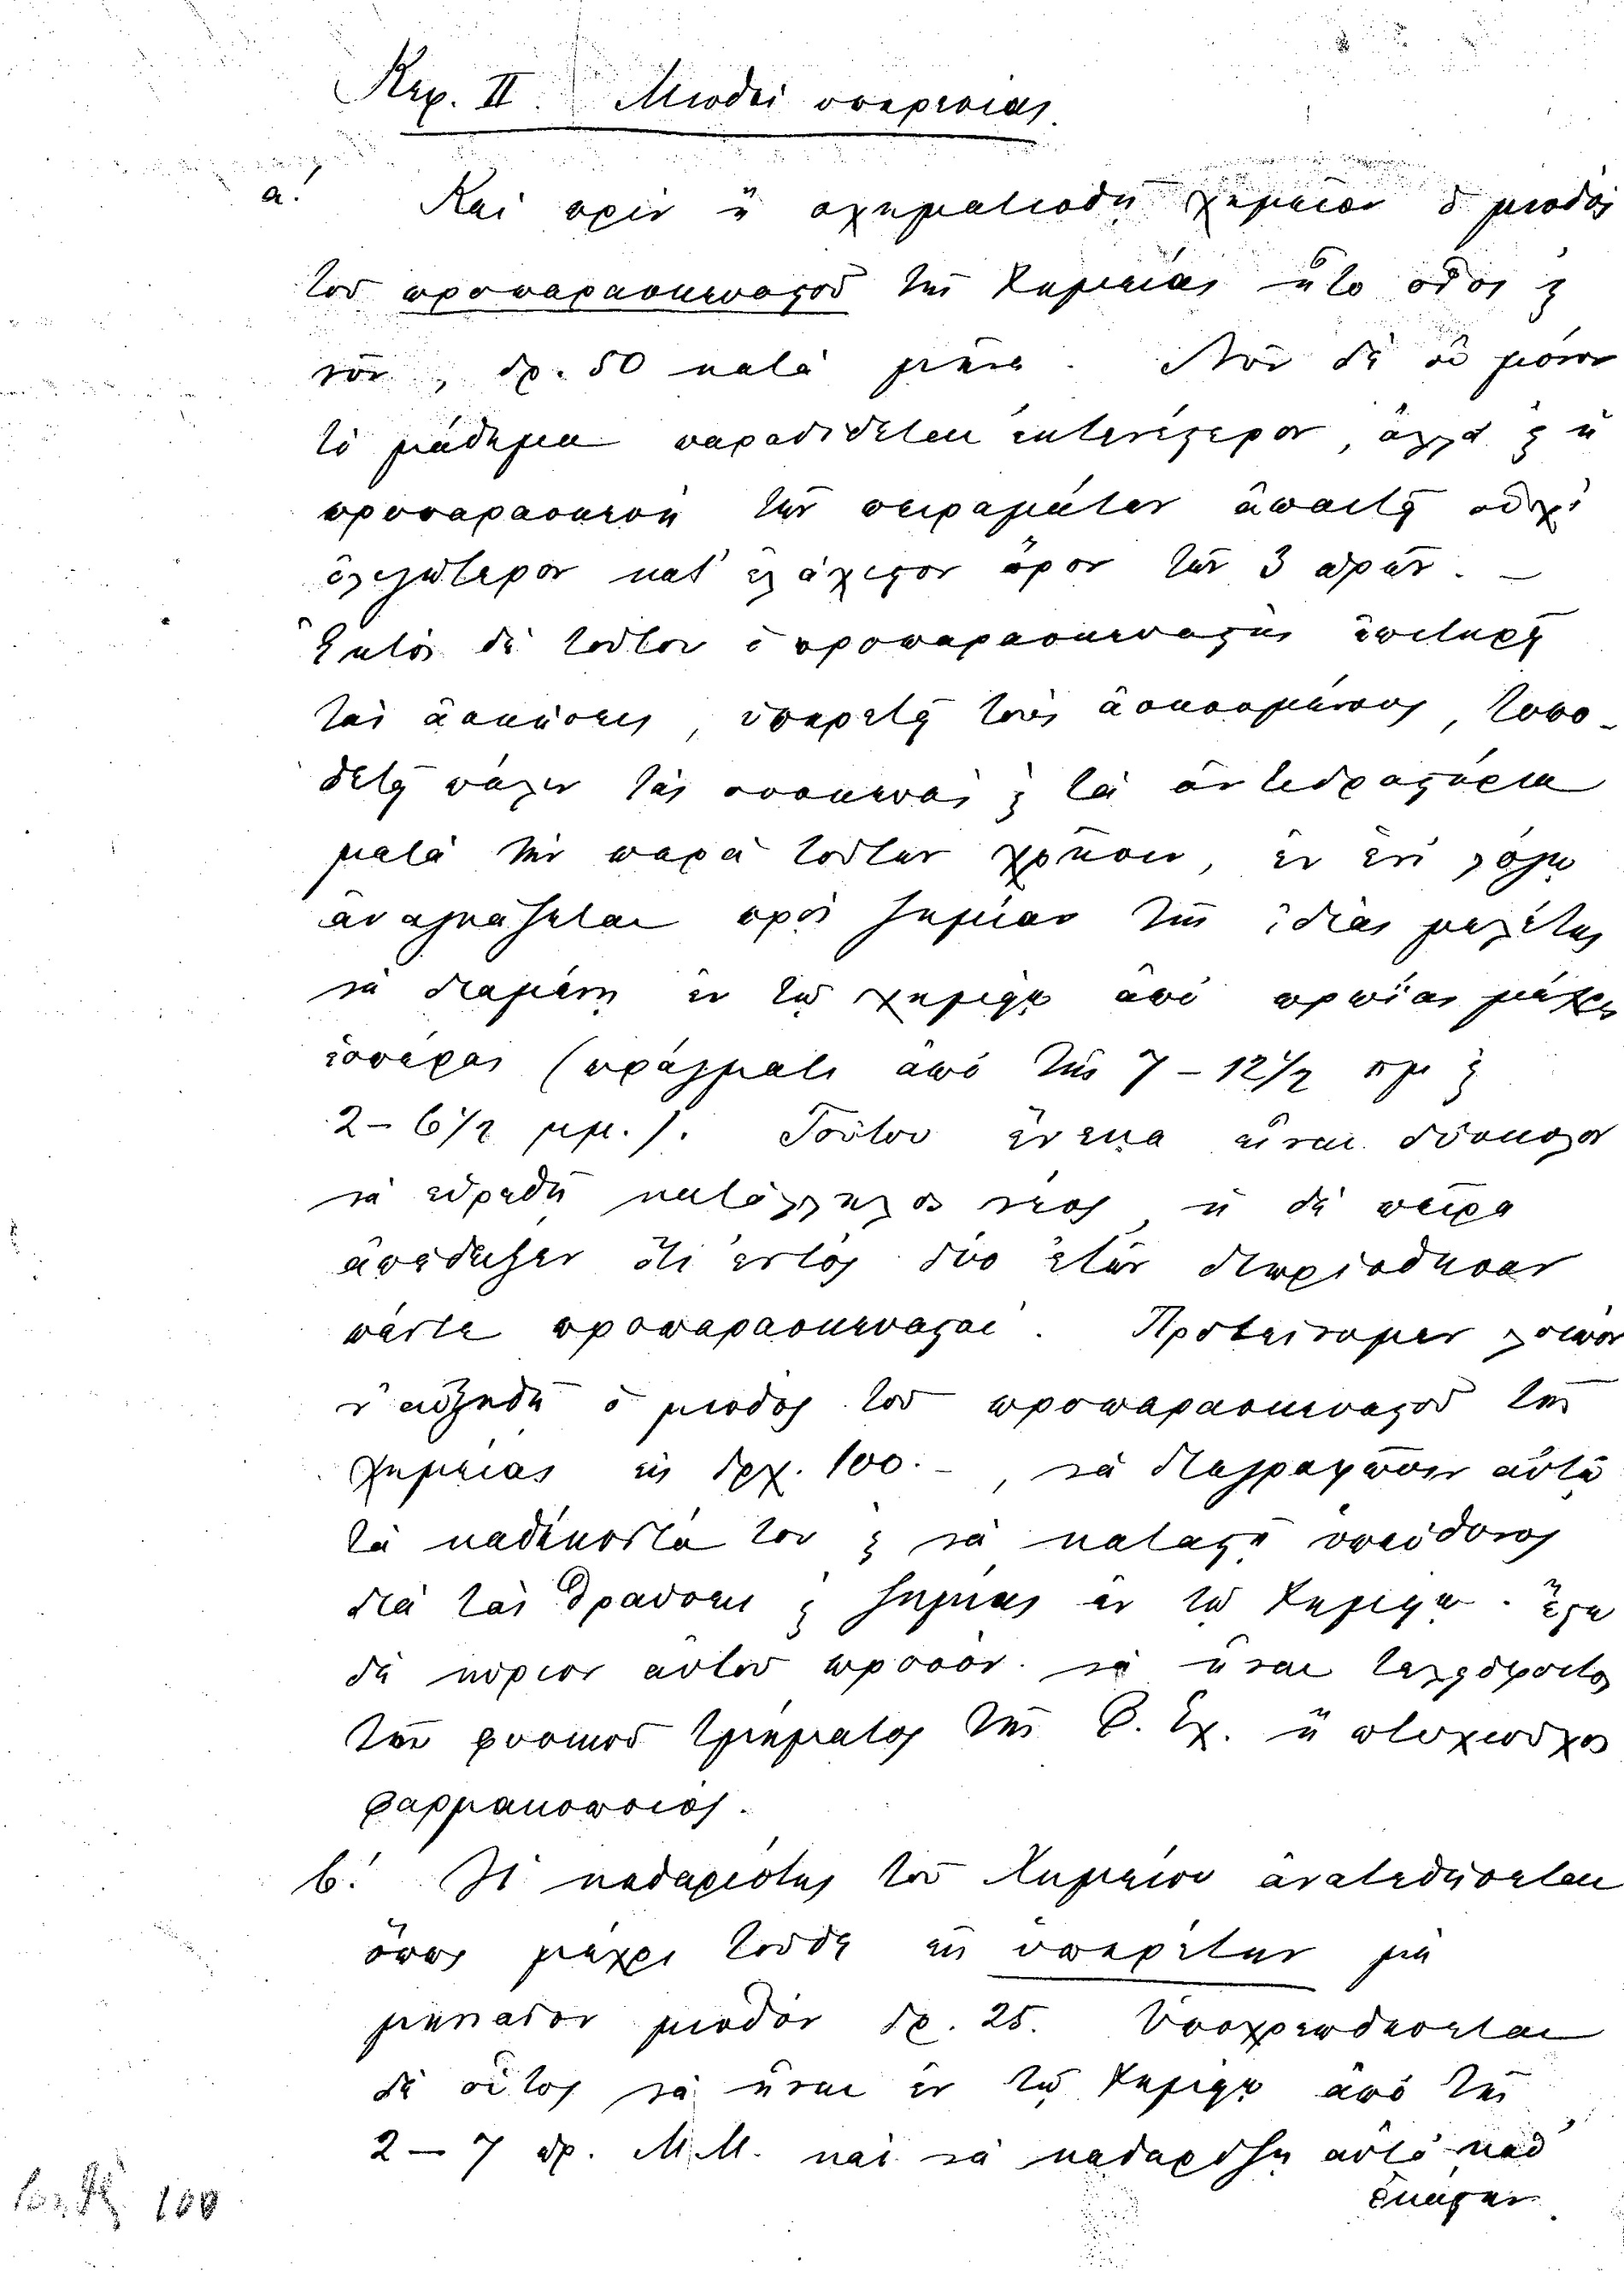 Κεφ. ΙΙ. Μισθοὶ υπηρεσίας.
α.' Καὶ πρὶν ἢ σχηματισθῇ χημεῖον ὁ μισθὸς
τοῦ προπαρασκευαστοῦ τῆς Χημείας ἦτο ὅσος ϗ
νῦν, δρ. 50 κατὰ μῆνα. Νῦν δὲ οὐ μόνον
τὸ μάθημα παραδίδεται ἐκτενέστερον, ἀλλὰ ϗ ἡ
προπαρασκευὴ τῶν πειραμάτων ἀπαιτεῖ οὐχὶ
ὀλιγώτερον κατ' ἐλάχιστον ὅρον τῶν 3 ὡρῶν. —
Ἐκτὸς δὲ τούτου ὁ προπαρασκευαστὴς ἐπιτηρεῖ
τὰς ἀσκήσεις, ὑπηρετεῖ τοὺς ἀσκουμένους, τοπο-
θετεῖ πάλιν τὰς συσκευὰς ϗ τὰ ἀντιδραστήρια
μετὰ τὴν παρὰ τούτων χρῆσιν, ἐν ἑνὶ λόγῳ
ἀναγκάζεται πρὸς ζημίαν τῆς ἰδίας μελέτης
νὰ διαμένῃ ἐν τῷ χημείῳ ἀπὸ πρωΐας μέχρι
ἑσπέρας (πράγματι ἀπὸ τῆς 7 – 12 1/2 πμ ϗ
2 – 6 1/2 μμ.). Τούτου ἕνεκα εἶναι δύσκολον
νὰ εὑρεθῇ κατάλληλος νέος, ἡ δὲ πεῖρα
ἀπέδειξεν ὅτι ἐντὸς δύο ἐτῶν διωρίσθησαν
πέντε προπαρασκευασταί. Προτείνομεν λοιπὸν
ν' αὐξηθῇ ὁ μισθὸς τοῦ προπαρασκευαστοῦ τῆς
χημείας εἰς δρχ. 100.–, νὰ διαγραφῶσιν αὐτῷ
τὰ καθήκοντά του ϗ νὰ καταστῇ ὑπεύθυνος
διὰ τὰς θραύσεις ϗ ζημίας ἐν τῷ Χημείῳ. Ἔστω
δὲ κύριον αὐτοῦ προσὸν νὰ ἦναι τελειόφοιτος
τοῦ φυσικοῦ τμήματος τῆς Φ. Σχ. ἢ πτυχιοῦχος
φαρμακοποιός.
β.' Ἡ καθαριότης τοῦ Χημείου ἀνατεθήσεται
ὅπως μέχρι τοῦδε εἰς ὑπηρέτην μὲ
μηνιαῖον μισθὸν δρ. 25. Ὑποχρεωθήσεται
δὲ οὗτος νὰ ἦναι ἐν τῷ Χημείῳ ἀπὸ τῆς
2 – 7 ὡρ. Μ.Μ. καὶ νὰ καθαρίζῃ αὐτὸ καθ'
ἑκάστην
100